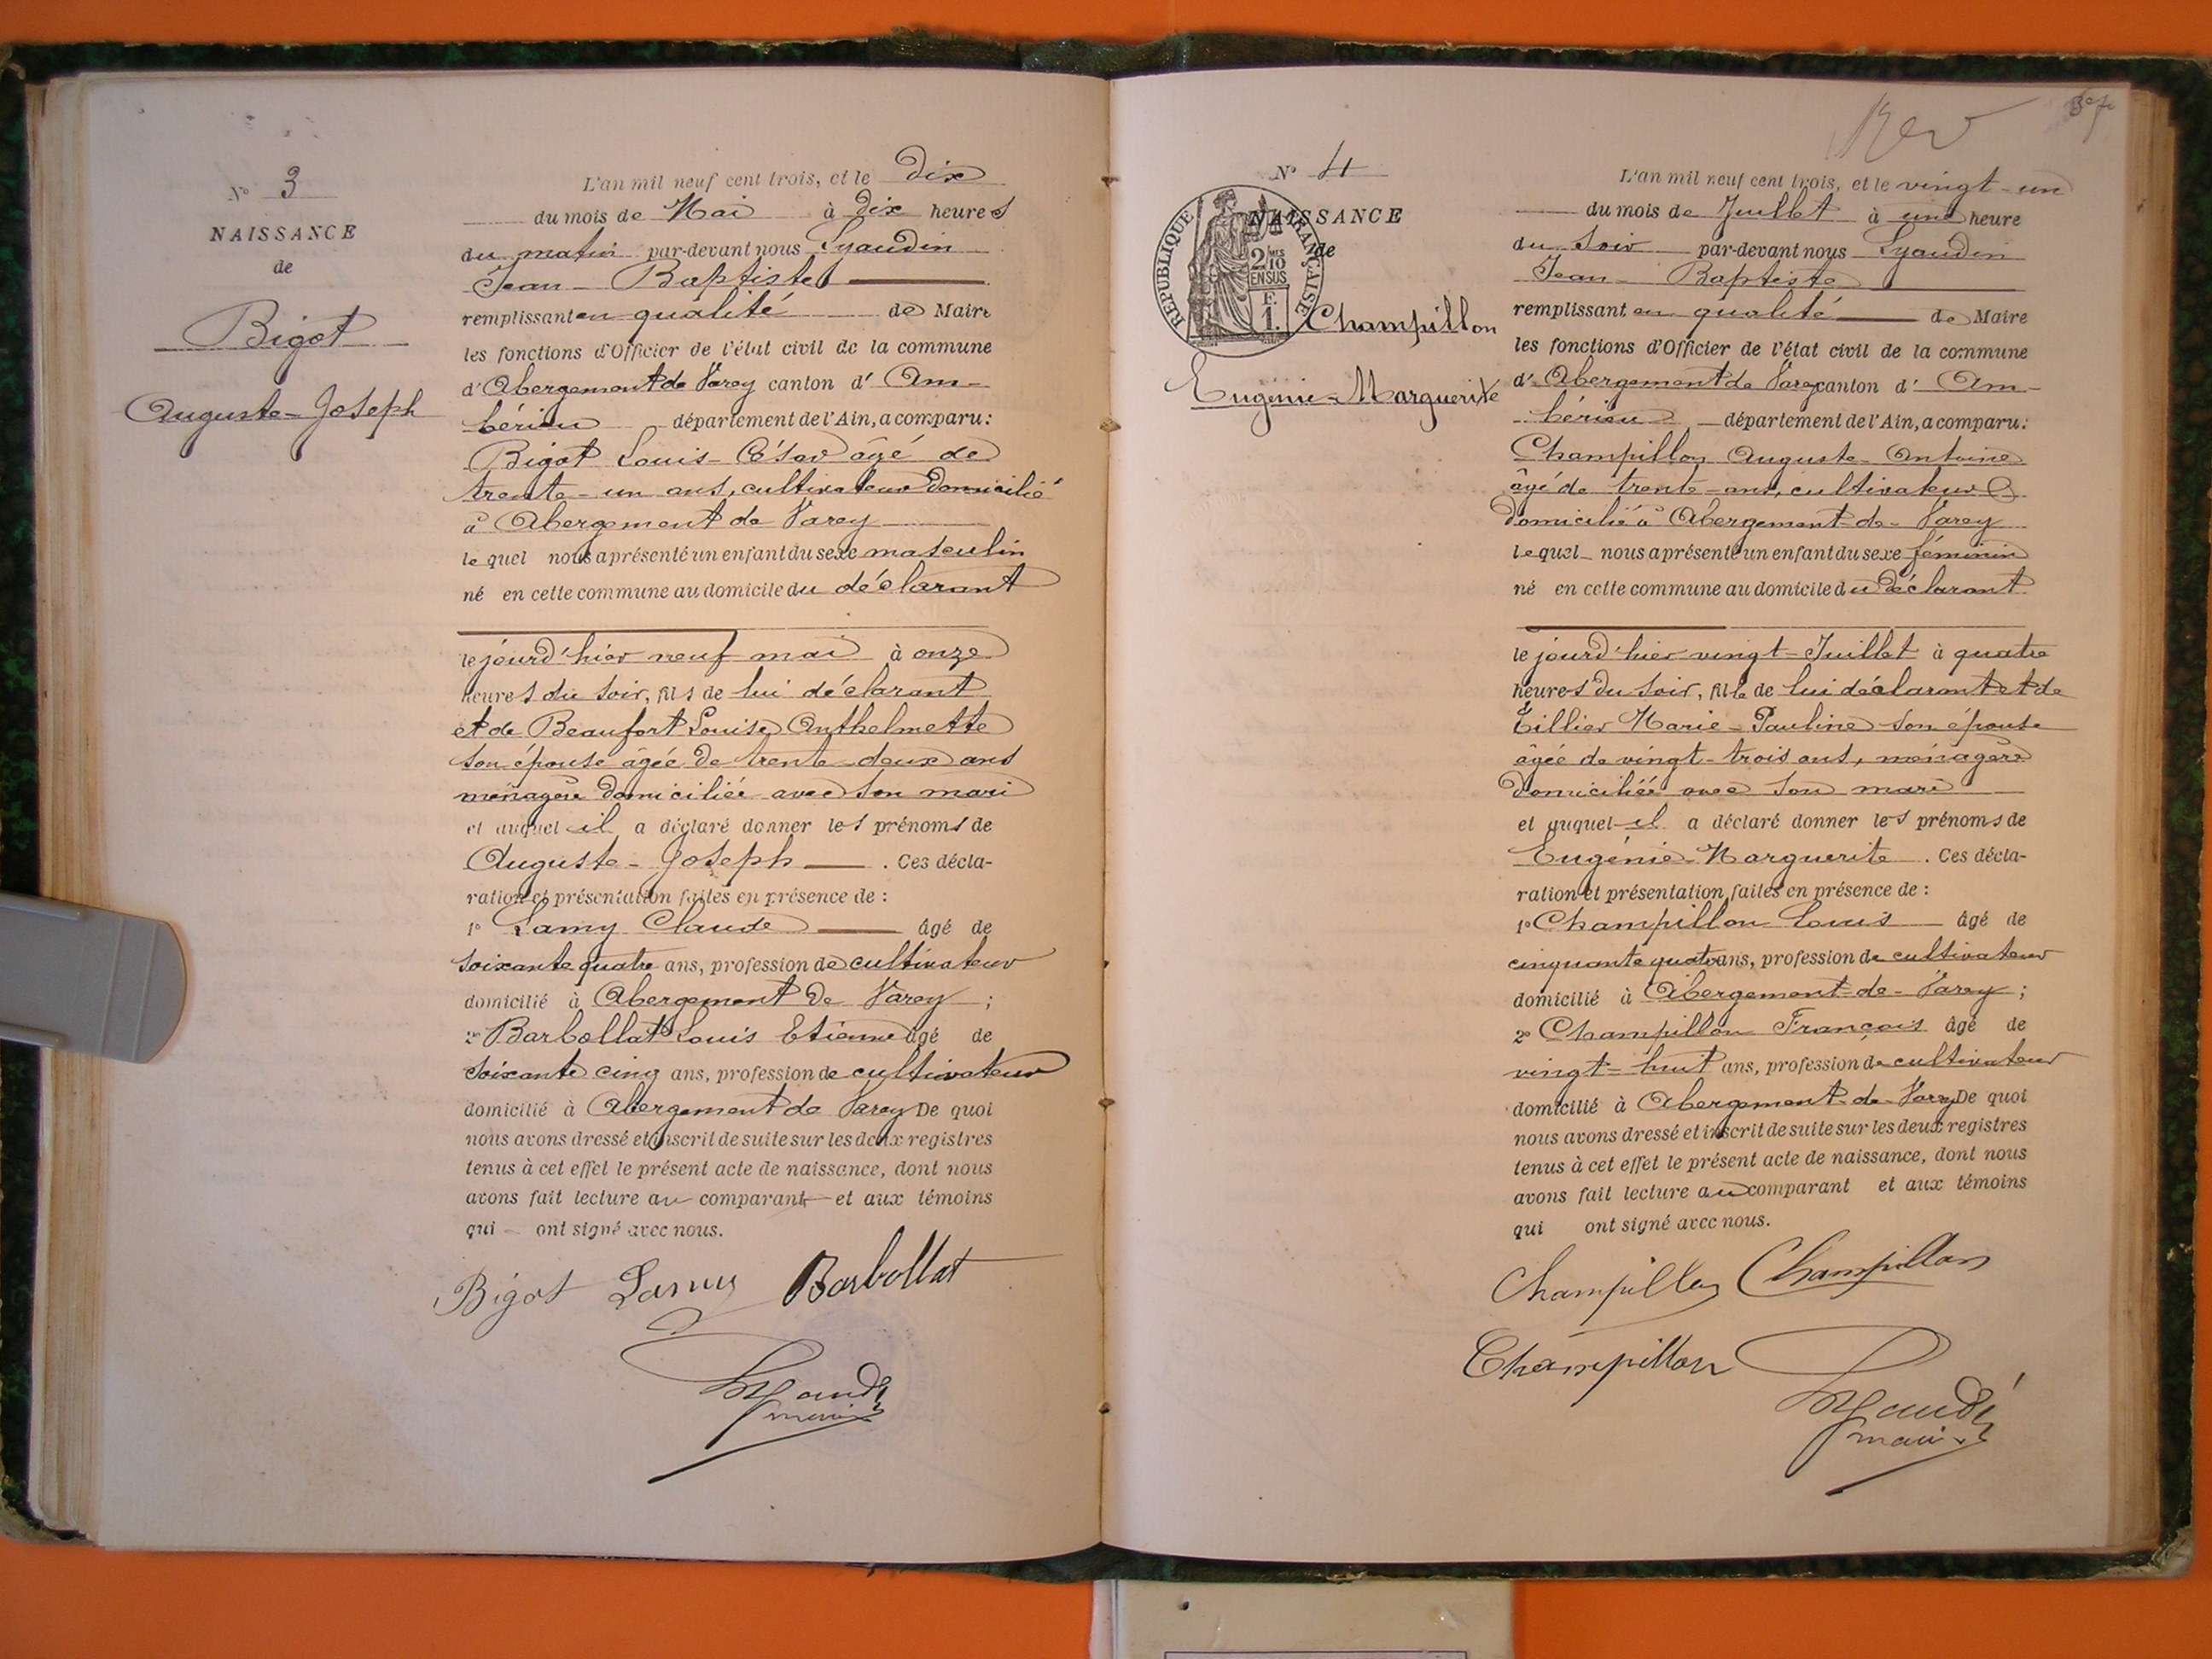 N° 3
NAISSANCE
de
Bigot
Auguste-Joseph
L'an mil neuf cent trois, et le dix
du mois de Mai à dix heures
du matin par-devant nous Lyaudin
Jean-Baptiste
remplissant en qualité de Maire
les fonctions d'Officier de l'état civil de la commune
d'Abergement de Varey canton d'Am-
bérieu département de l'Ain, a comparu:
Bigot Louis-César âgé de
trente-un ans, cultivateur domicilié
à Abergement de Varey
le quel nous a présenté un enfant du sexe masculin
né en cette commune au domicile du déclarant
le jourd'hier neuf mai à onze
heures du soir, fils de lui déclarant
et de Beaufort Louise Anthelmette
son épouse âgée de trente-deux ans
ménagère domiciliée avec son mari
et auquel il a déclaré donner les prénoms de
Auguste-Joseph. Ces décla-
ration et présentation faites en présence de :
1° Lamy Claude âgé de
soixante quatre ans, profession de cultivateur
domicilié à Abergement de Varey ;
2° Barbollat Louis Etienne âgé de
soixante cinq ans, profession de cultivateur
domicilié à Abergement de Varey De quoi
nous avons dressé et inscrit de suite sur les deux registres
tenus à cet effet le présent acte de naissance, dont nous
avons fait lecture au comparant et aux témoins
qui ont signé avec nous.
Bigot Lamy Barbollat
Lyaudin
maire
37
Rev
N° 4
NAISSANCE
de
RÉPUBLIQUE FRANÇAISE
2/10 MES
EN SUS
F.
1.
Champillon
Eugénie-Marguerite
L'an mil neuf cent trois, et le vingt-un
du mois de Juillet à une heure
du soir par-devant nous Lyaudin
Jean-Baptiste
remplissant en qualité de Maire
les fonctions d'Officier de l'état civil de la commune
d'Abergement de Varey canton d'Am-
bérieu département de l'Ain, a comparu:
Champillon Auguste-Antoine
âgé de trente-ans, cultivateur
domicilié à Abergement-de-Varey
lequel nous a présenté un enfant du sexe féminin
né en cette commune au domicile du déclarant
le jourd'hier vingt-Juillet à quatre
heures du soir, fille de lui déclarant et de
Tillier Marie-Pauline son épouse
âgée de vingt-trois ans, ménagère
domiciliée avec son mari
et auquel il a déclaré donner les prénoms de
Eugénie-Marguerite. Ces décla-
ration et présentation faites en présence de :
1° Champillon Louis âgé de
cinquante quatre ans, profession de cultivateur
domicilié à Abergement-de-Varey ;
2° Champillon François âgé de
vingt-huit ans, profession de cultivateur
domicilié à Abergement-de-Varey De quoi
nous avons dressé et inscrit de suite sur les deux registres
tenus à cet effet le présent acte de naissance, dont nous
avons fait lecture au comparant et aux témoins
qui ont signé avec nous.
Champillon Champillon
Champillon
Lyaudin
maire